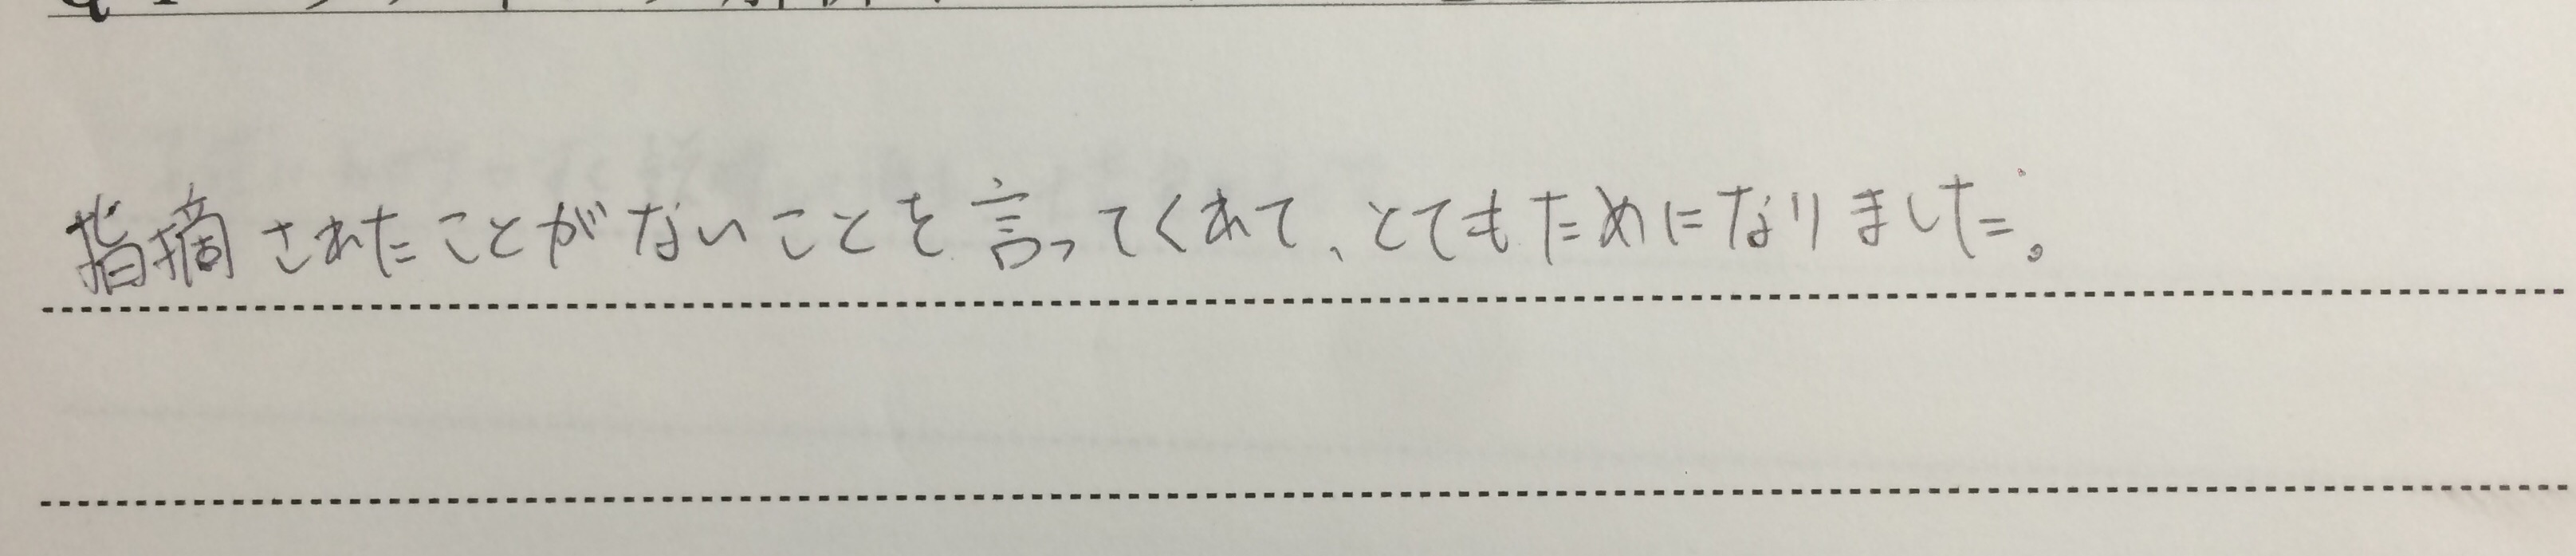 指摘されたことがないことを言ってくれて、とてもためになりました。